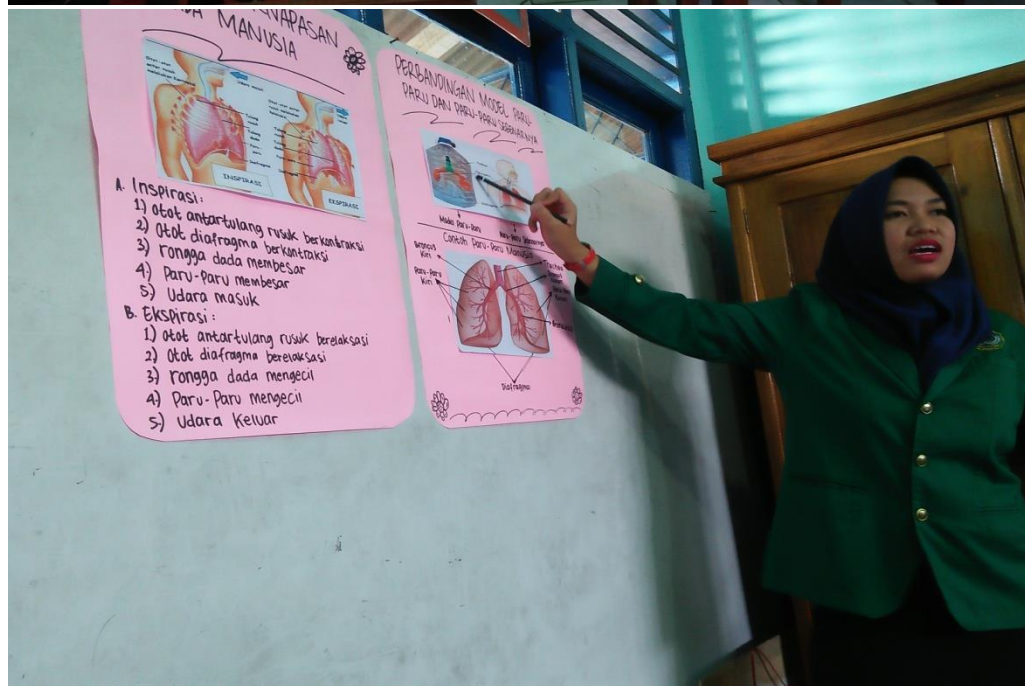 MANUSIA
INSPIRASI
EKSPIRASI
A. Inspirasi:
1) Otot antartulang rusuk berkontraksi
2) Otot diafragma berkontraksi
3) rongga dada membesar
4) Paru-Paru membesar
5) Udara masuk
B. Ekspirasi:
1) Otot antartulang rusuk berelaksasi
2) Otot diafragma berelaksasi
3) rongga dada mengecil
4) Paru-Paru mengecil
5) Udara Keluar
PERBANDINGAN MODEL PARU-
PARU DAN PARU-PARU SEBENARNYA
Model Paru-Paru
Contoh Paru-Paru Manusia
Broncus
Paru-Paru
Kiri
Diafragma